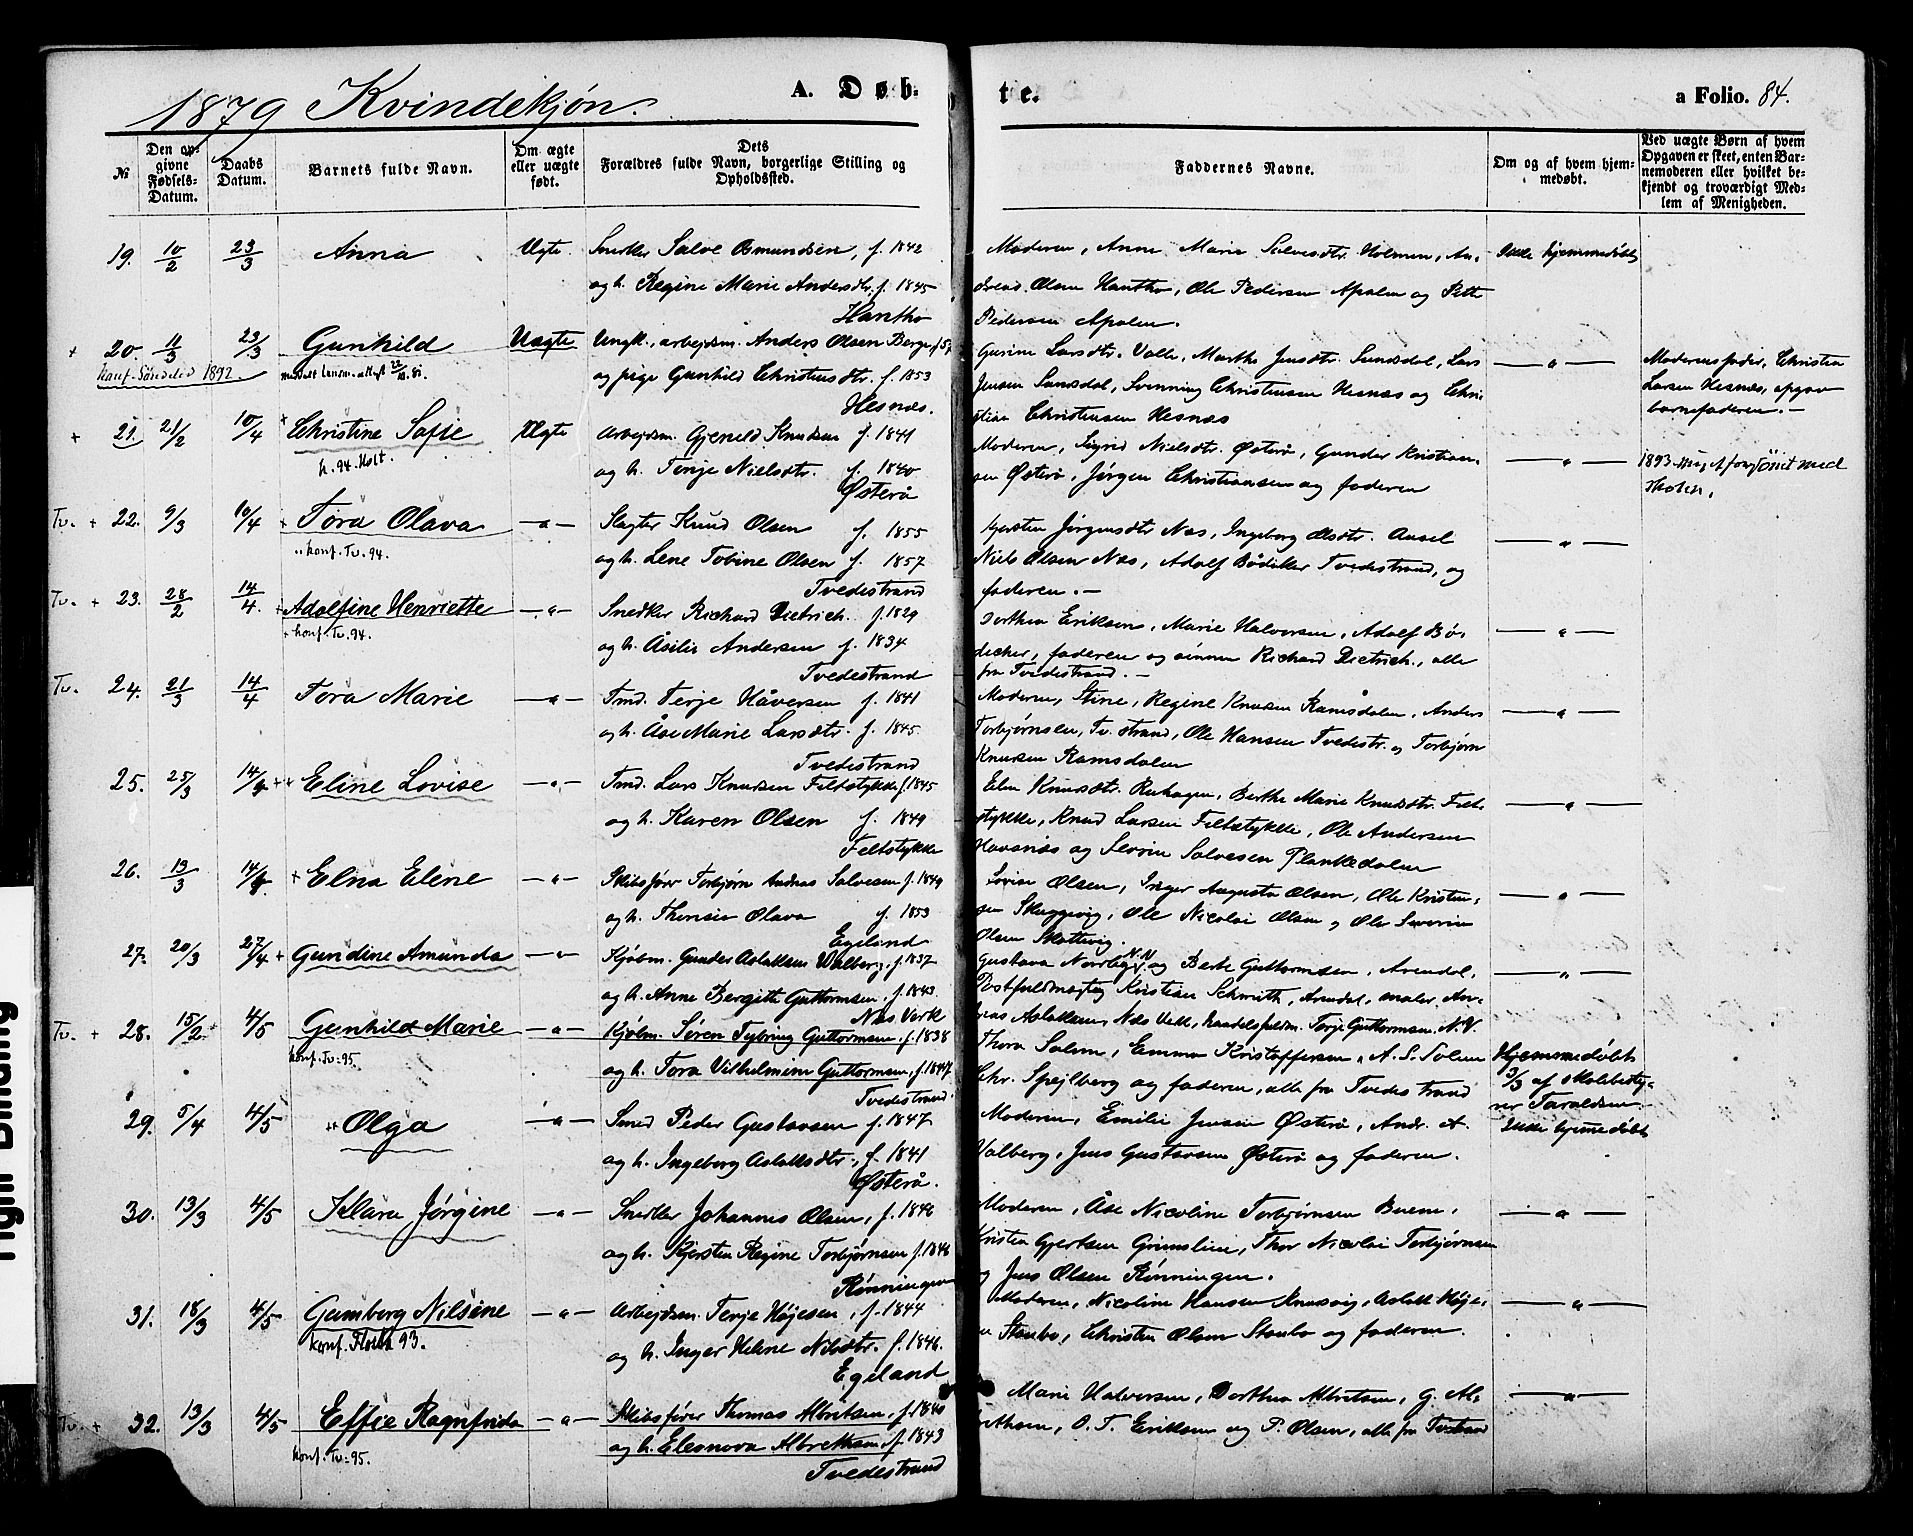 1879 Kvindekjøn.
A. Døb-
te.
a Folio. 84.
№
Den op-
givne
Fødsels-
Datum.
Daabs
Datum.
Barnets fulde Navn.
Om ægte
eller uægte
født.
Dets
Forældres fulde Navn, borgerlige Stilling og
Opholdssted.
Faddernes Navne.
Om og af hvem hjem-
medøbt.
Ved uægte Børn af hvem
Opgaven er skeet, enten Bar-
nemoderen eller hvilket be-
kjendt og troværdigt Med-
lem af Menigheden.
19. 10/2 23/3 Anna Ægte. Snedker Salve Osmundsen, f. 1842
og h. Regine Marie Andersdtr. f. 1845
Hantho
Moderen, Anne Marie Salvesdtr. Holmen, An-
dreas Olsen Hantho, Ole Pedersen Apalen og
Pedersen Apalen.
Ikke hjemmedøbt
+ 20. 11/3 23/3 Gunhild Uægte Ungk., arbejdsm. Anders Olsen Berge f 57
konf. Søndeled 1892.
og pige Gunhild Christensdtr. f. 1853
Hesnæs.
Gurine Larsdtr. Valle, Marthe Jensdtr. Sundsdal, Lars
Jensen Sundsdal, Svenning Christensen Hesnæs og Chri-
stian Christensen Hesnæs
— " —
Moderens fader, Christen
Larsen Hesnæs, opgav
barnefaderen. —
+ 21. 21/2 10/4 + Christine Sofie Ægte Arbejdsm. Gjeruld Knudsen f. 1841
k. 94. Holt.
og h. Terje Nielsdtr. f. 1840
Østerå
Moderen, Sigrid Nielsdtr. Østerå, Gunder Kristian-
sen Østerå, Jørgen Christiansen og faderen
— " —
1893
Tv. + 22. 9/3 10/4 + Tora Olava — " — Slagter Knud Olsen f. 1855
konf. Tv. 94.
og h. Lene Tobine Olsen f. 1857
Tvedestrand
Kjersten Jørgensdtr Næs, Ingeborg Olsdtr.
Niels Olsen Næs, Adolf Bødiker Tvedestrand, og
faderen. —
— " —
Tv. + 23. 28/2 14/4. + Adolfine Henriette — " — Snedker Richard Dietrich. f. 1829
+ konf. Tv. 94.
og h. Åsilie Andersen f. 1834
Tvedestrand
Dorthea Eriksen, Marie Halvorsen, Adolf Bø-
dicher, faderen og sønnen Richard Dietrich., alle
fra Tvedestrand. —
— " —
Tv. 24. 21/3 14/4 Tora Marie — " — Tmd. Terje Håversen f. 1841
og h. Åse Marie Larsdtr. f. 1845.
Tvedestrand
Moderen, Stine, Regine Knudsen Ramsdalen, Anders
Torbjørnsen, Tv. strand, Ole Hansen Tvedestr. og Torbjørn
Knudsen Ramsdalen
— " —
25. 25/3 14/4 ++ Eline Lovise — " — Tmd. Lars Knudsen Feltstykke f. 1845
og h. Karen Olsen f. 1849
Feltstykke
Elen Knudsdtr. , Berthe Marie Knudsdtr. Felt-
stykke, Knud Larsen Feltstykke, Ole Andersen
Havsnæs og Severin Salvesen Plankedalen
— " —
26. 13/3 14/4. + Elna Elene — " — Skibsfører Torbjørn Andreas Salvesen f. 1849
og h. Theresie Olava f. 1853
Egeland
Lovise Olsen, Inger Augusta Olsen, Ole Kristen-
sen Skuggevig, Ole Nicolai Olsen og Ole Severin
Olsen Skottevig.
— " —
27. 20/3 27/4 + Gundine Amunda — " — Kjøbm. Gunder Aslaksen Walberg, f. 1837
og h. Anne Bergitte Guttormsen. f. 1843.
Næs Værk
Gustava og Berte Guttormsen, Arendal,
Postfuldmægtig Kristian Schmith, Arendal, maler An-
dreas Aslaksen, Næs Værk, handelsfuldm. Terje Guttormsen. N. V.
— " —
Tv. + 28. 15/2. 4/5 Gunhild Marie — " — Kjøbm. Søren Tybring Guttormsen. f. 1838
konf. Tv. 95.
og h. Tora Vilhelmine Guttormsen, f. 1847
Tvedestrand.
Thora Salem, Emma Kristoffersen, A. S. Solem
Chr. Spejlberg og faderen, alle fra Tvedestrand
Hjemmedøbt
3/3 af skolebesty-
rer Taraldsen.
29. 5/4 4/5 ++ Olga — " — Smed Peder Gustavsen f. 1847
og h. Ingeborg Aslaksdtr., f. 1841
Østerå.
Moderen, Emilie Jensen Østerå, Andr. A.
Valberg, Jens Gustavsen Østerå og faderen.
Ikke hjemmedøbt
30. 13/3 4/5 Klara Jørgine — " — Snedker Johannes Olsen, f. 1846
og h. Kjersten Regine Torbjørnsen f. 1846
Rønningen
Moderen, Åse Nicoline Torbjørnsen Buene,
Kristen Gjertsen Grimslien, Thor Nicolai Torbjørnsen
og Jens Olsen Rønningen.
— " —
31. 18/3 4/5 Gumborg Nilsine — " — Arbejdsm. Terje Højesen, f. 1844
konf. 93.
og h. Inger Helene Nilsdtr. f. 1846.
Egeland
Moderen, Nicoline Hansen Knudsvig, Aslak Høje-
sen Staubø, Christen Olsen Staubø og faderen.
— " —
Tv. + 32. 13/3 4/5 Effie Ragnfrida — " — Skibsfører Thomas Albretsen, f. 1840
konf. Tv. 95.
og h. Eleonora Albrethsen, f. 1843
Tvedestrand
Marie Halvorsen, Dorthea Albretsen, G. Al-
brethsen, O. T. Eriksen og P. Olsen, alle fra Tvestrand
— " —